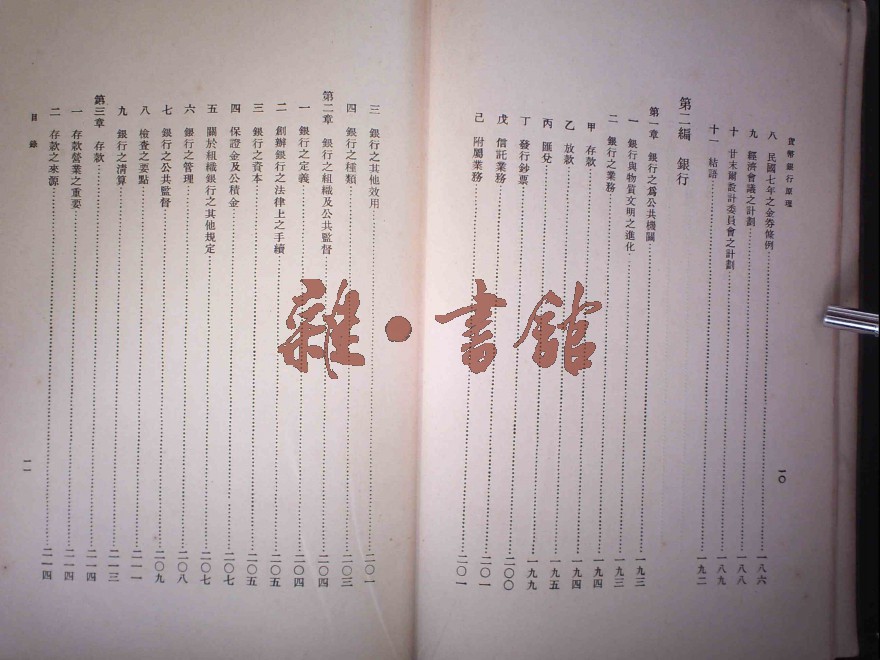 貨幣銀行原理
八 民國七年之金券條例 一八六
九 經濟會議之計劃 一八八
十 甘末爾設計委員會之計劃 一八九
十一 結語 一九二
第二編 銀行
第一章 銀行之爲公共機關 一九三
一 銀行與物質文明之進化 一九三
二 銀行之業務 一九四
甲 存款 一九四
乙 放款 一九四
丙 匯兌 一九五
丁 發行鈔票 一九九
戊 信託業務 二〇〇
己 附屬業務 二〇一
一〇
三 銀行之其他效用 二〇一
四 銀行之種類 二〇三
第二章 銀行之組織及公共監督 二〇四
一 銀行之定義 二〇四
二 創辦銀行之法律上之手續 二〇五
三 銀行之資本 二〇五
四 保證金及公積金 二〇七
五 關於組織銀行之其他規定 二〇七
六 銀行之管理 二〇八
七 銀行之公共監督 二〇九
八 檢查之要點 二一一
九 銀行之清算 二一三
第三章 存款 二一四
一 存款營業之重要 二一四
二 存款之來源 二一四
目錄
一一
雜·書館